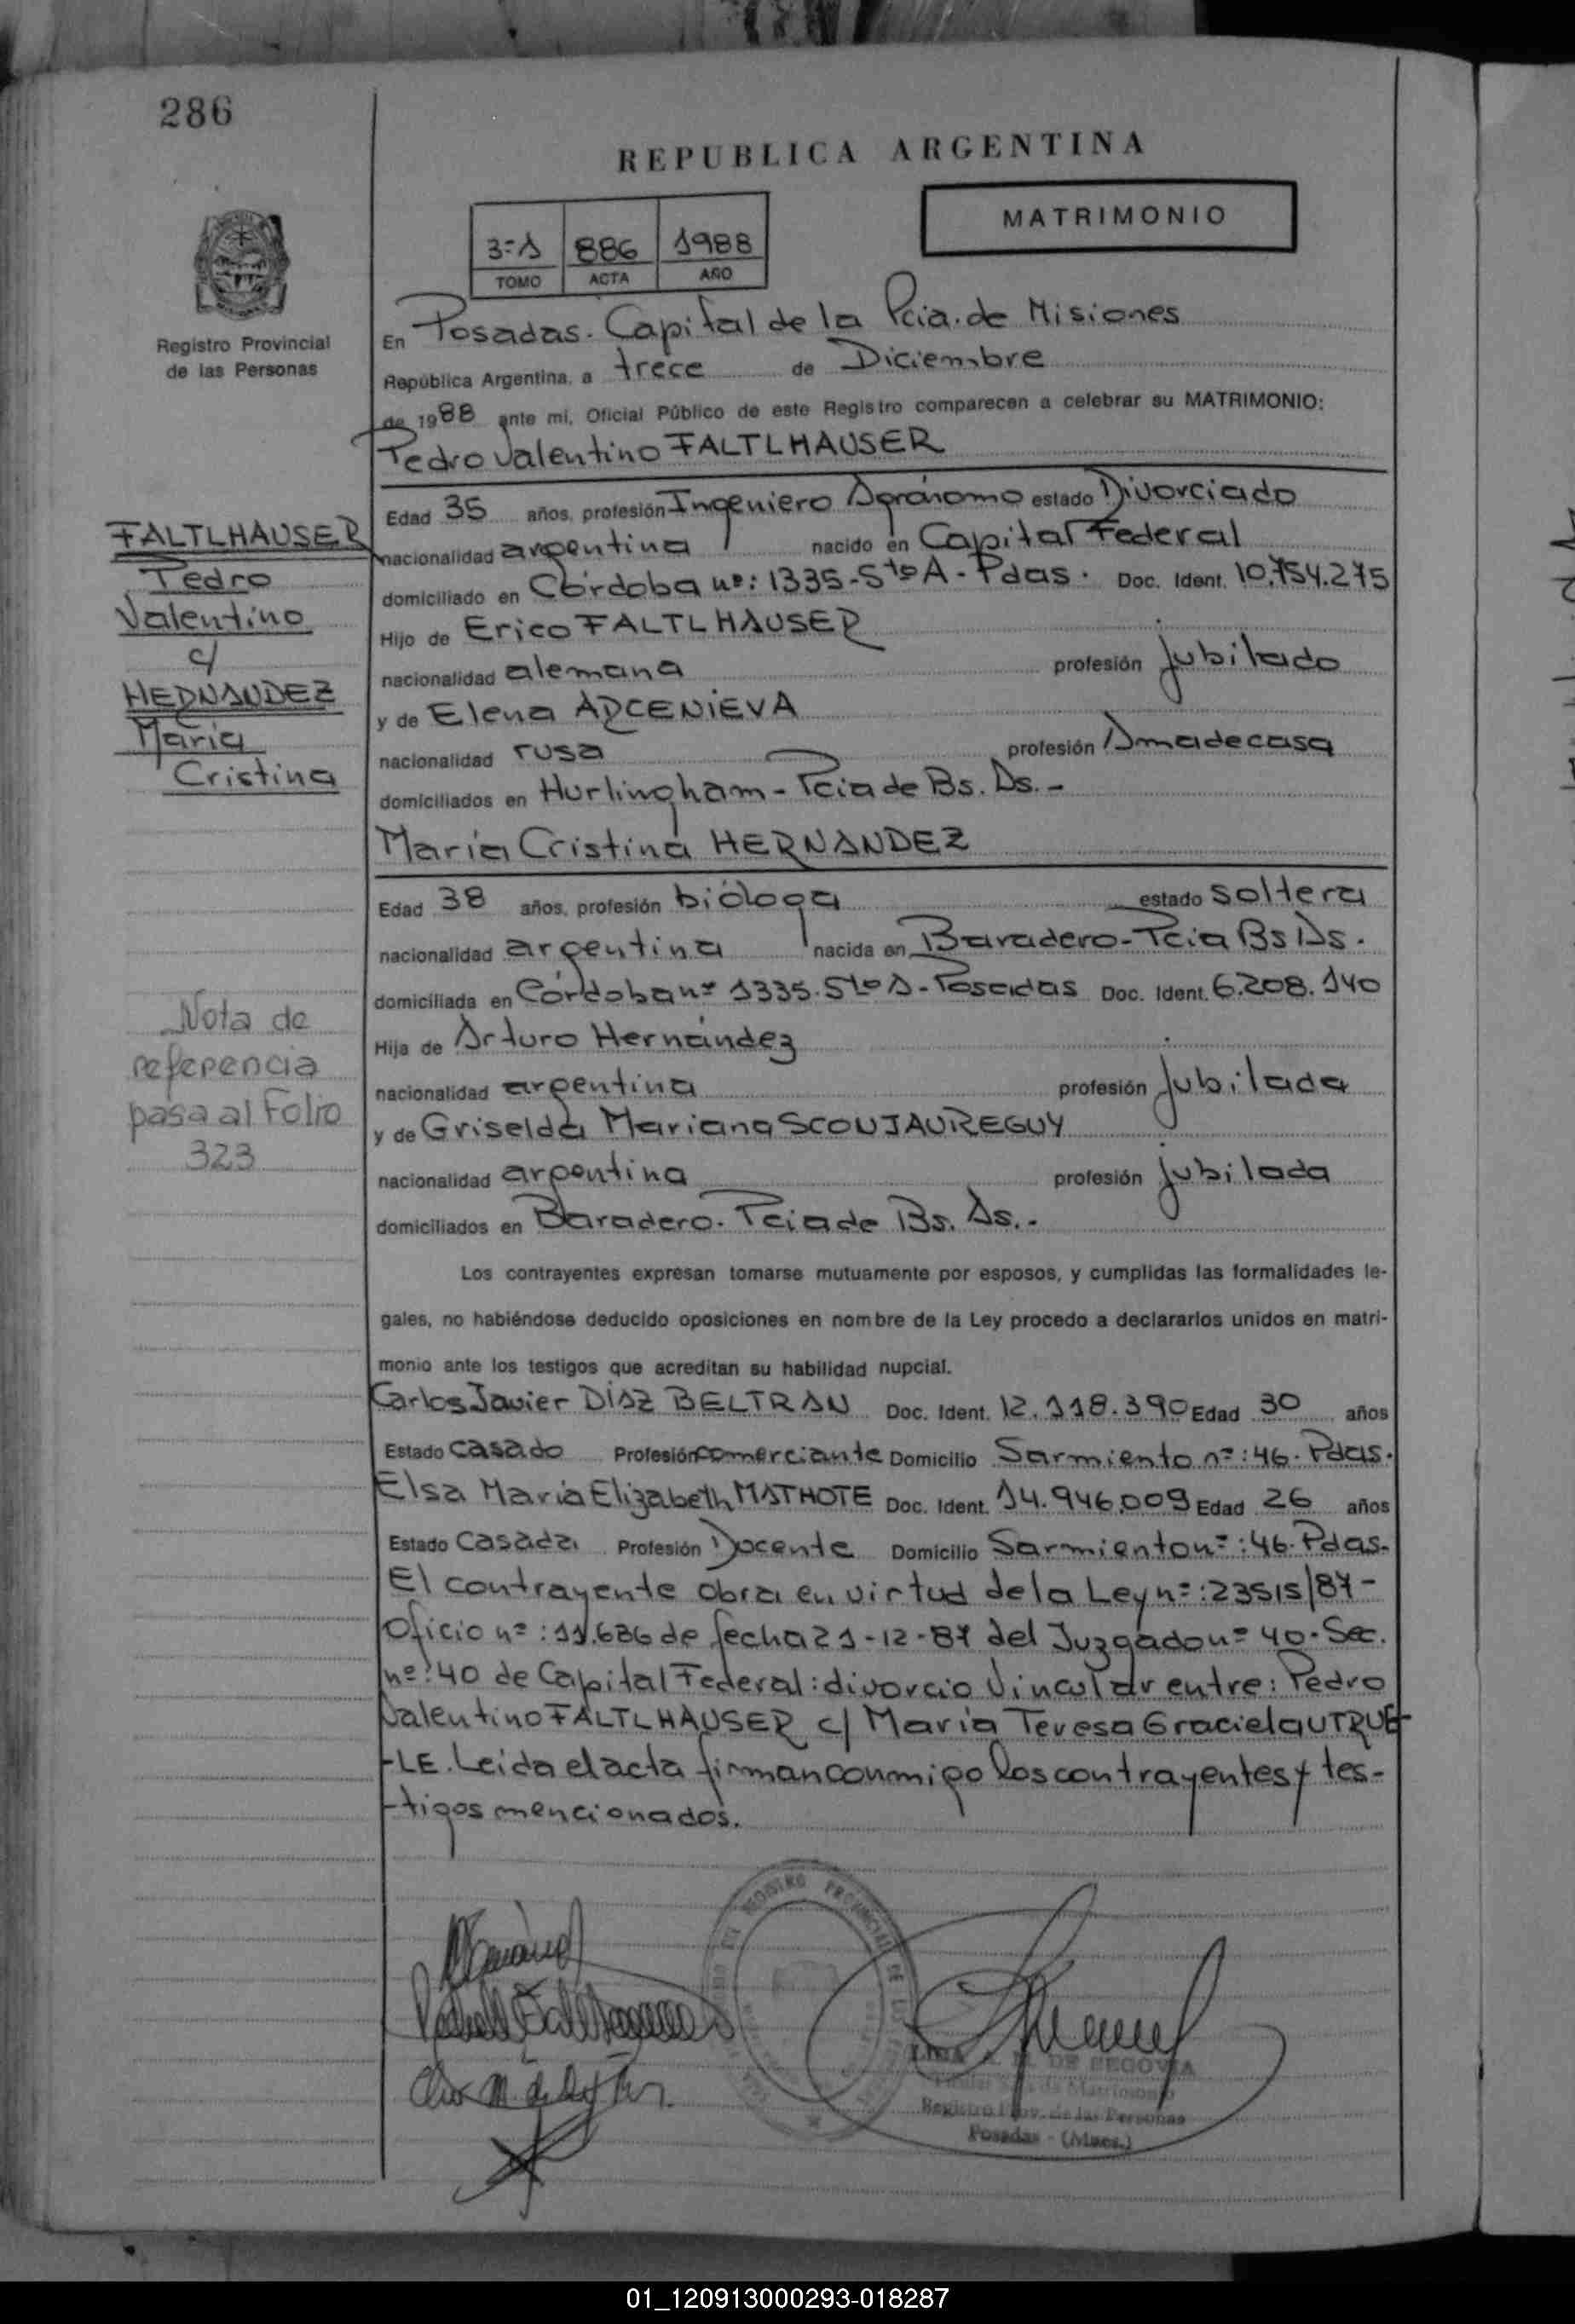 286
REPUBLICA ARGENTINA
MATRIMONIO
3=1 886 1988
TOMO ACTA AÑO
Registro Provincial
de las Personas
En Posadas. Capital de la Pcia. de Misiones
República Argentina, a trece de Diciembre
de 1988 ante mi, Oficial Público de este Registro comparecen a celebrar su MATRIMONIO:
Pedro Valentino FALTLHAUSER
Edad 35 años, profesión Ingeniero Agrónomo estado Divorciado
nacionalidad argentina nacido en Capital Federal
domiciliado en Córdoba nº: 1335-5to A - Pdas. Doc. Ident. 10.754.275
Hijo de Erico FALTLHAUSER
nacionalidad alemana profesión jubilado
y de Elena ARCENIEVA
nacionalidad rusa profesión Amadecasa
domiciliados en Hurlingham - Pcia de Bs. As. -
FALTLHAUSER
Pedro
Valentino
c/
HERNANDEZ
María
Cristina
María Cristina HERNANDEZ
Edad 38 años, profesión bióloga estado soltera
nacionalidad argentina nacida en Baradero - Pcia Bs As.
domiciliada en Córdoba nº 1335. 5to A - Posadas Doc. Ident. 6.208.140
Hija de Arturo Hernández
nacionalidad argentina profesión jubilada
y de Griselda Mariana SCOUJAUREGUY
nacionalidad argentina profesión jubilada
domiciliados en Baradero. Pcia de Bs. As. -
Nota de
referencia
pasa al Folio
323
Los contrayentes expresan tomarse mutuamente por esposos, y cumplidas las formalidades le-
gales, no habiéndose deducido oposiciones en nombre de la Ley procedo a declararlos unidos en matri-
monio ante los testigos que acreditan su habilidad nupcial.
Carlos Javier DÍAZ BELTRAN Doc. Ident. 12.118.390 Edad 30 años
Estado casado Profesión comerciante Domicilio Sarmiento nº: 46. Pdas.
Elsa María Elizabeth MATHOTE Doc. Ident. 14.946.009 Edad 26 años
Estado casada Profesión Docente Domicilio Sarmiento nº: 46. Pdas.
El contrayente obra en virtud de la Ley nº: 23515/87-
Oficio nº: 11.686 de fecha 21-12-87 del Juzgado nº 40. Sec.
nº: 40 de Capital Federal: divorcio vincular entre: Pedro
Valentino FALTLHAUSER c/ María Teresa Graciela UTRUE-
-LE. Leida el acta firman conmigo los contrayentes y tes-
-tigos mencionados.
REGISTRO PROVINCIAL DE LAS
DE SEGOVIA
Registro Prov. de las Personas
Posadas - (Mnes.)
01_120913000293-018287